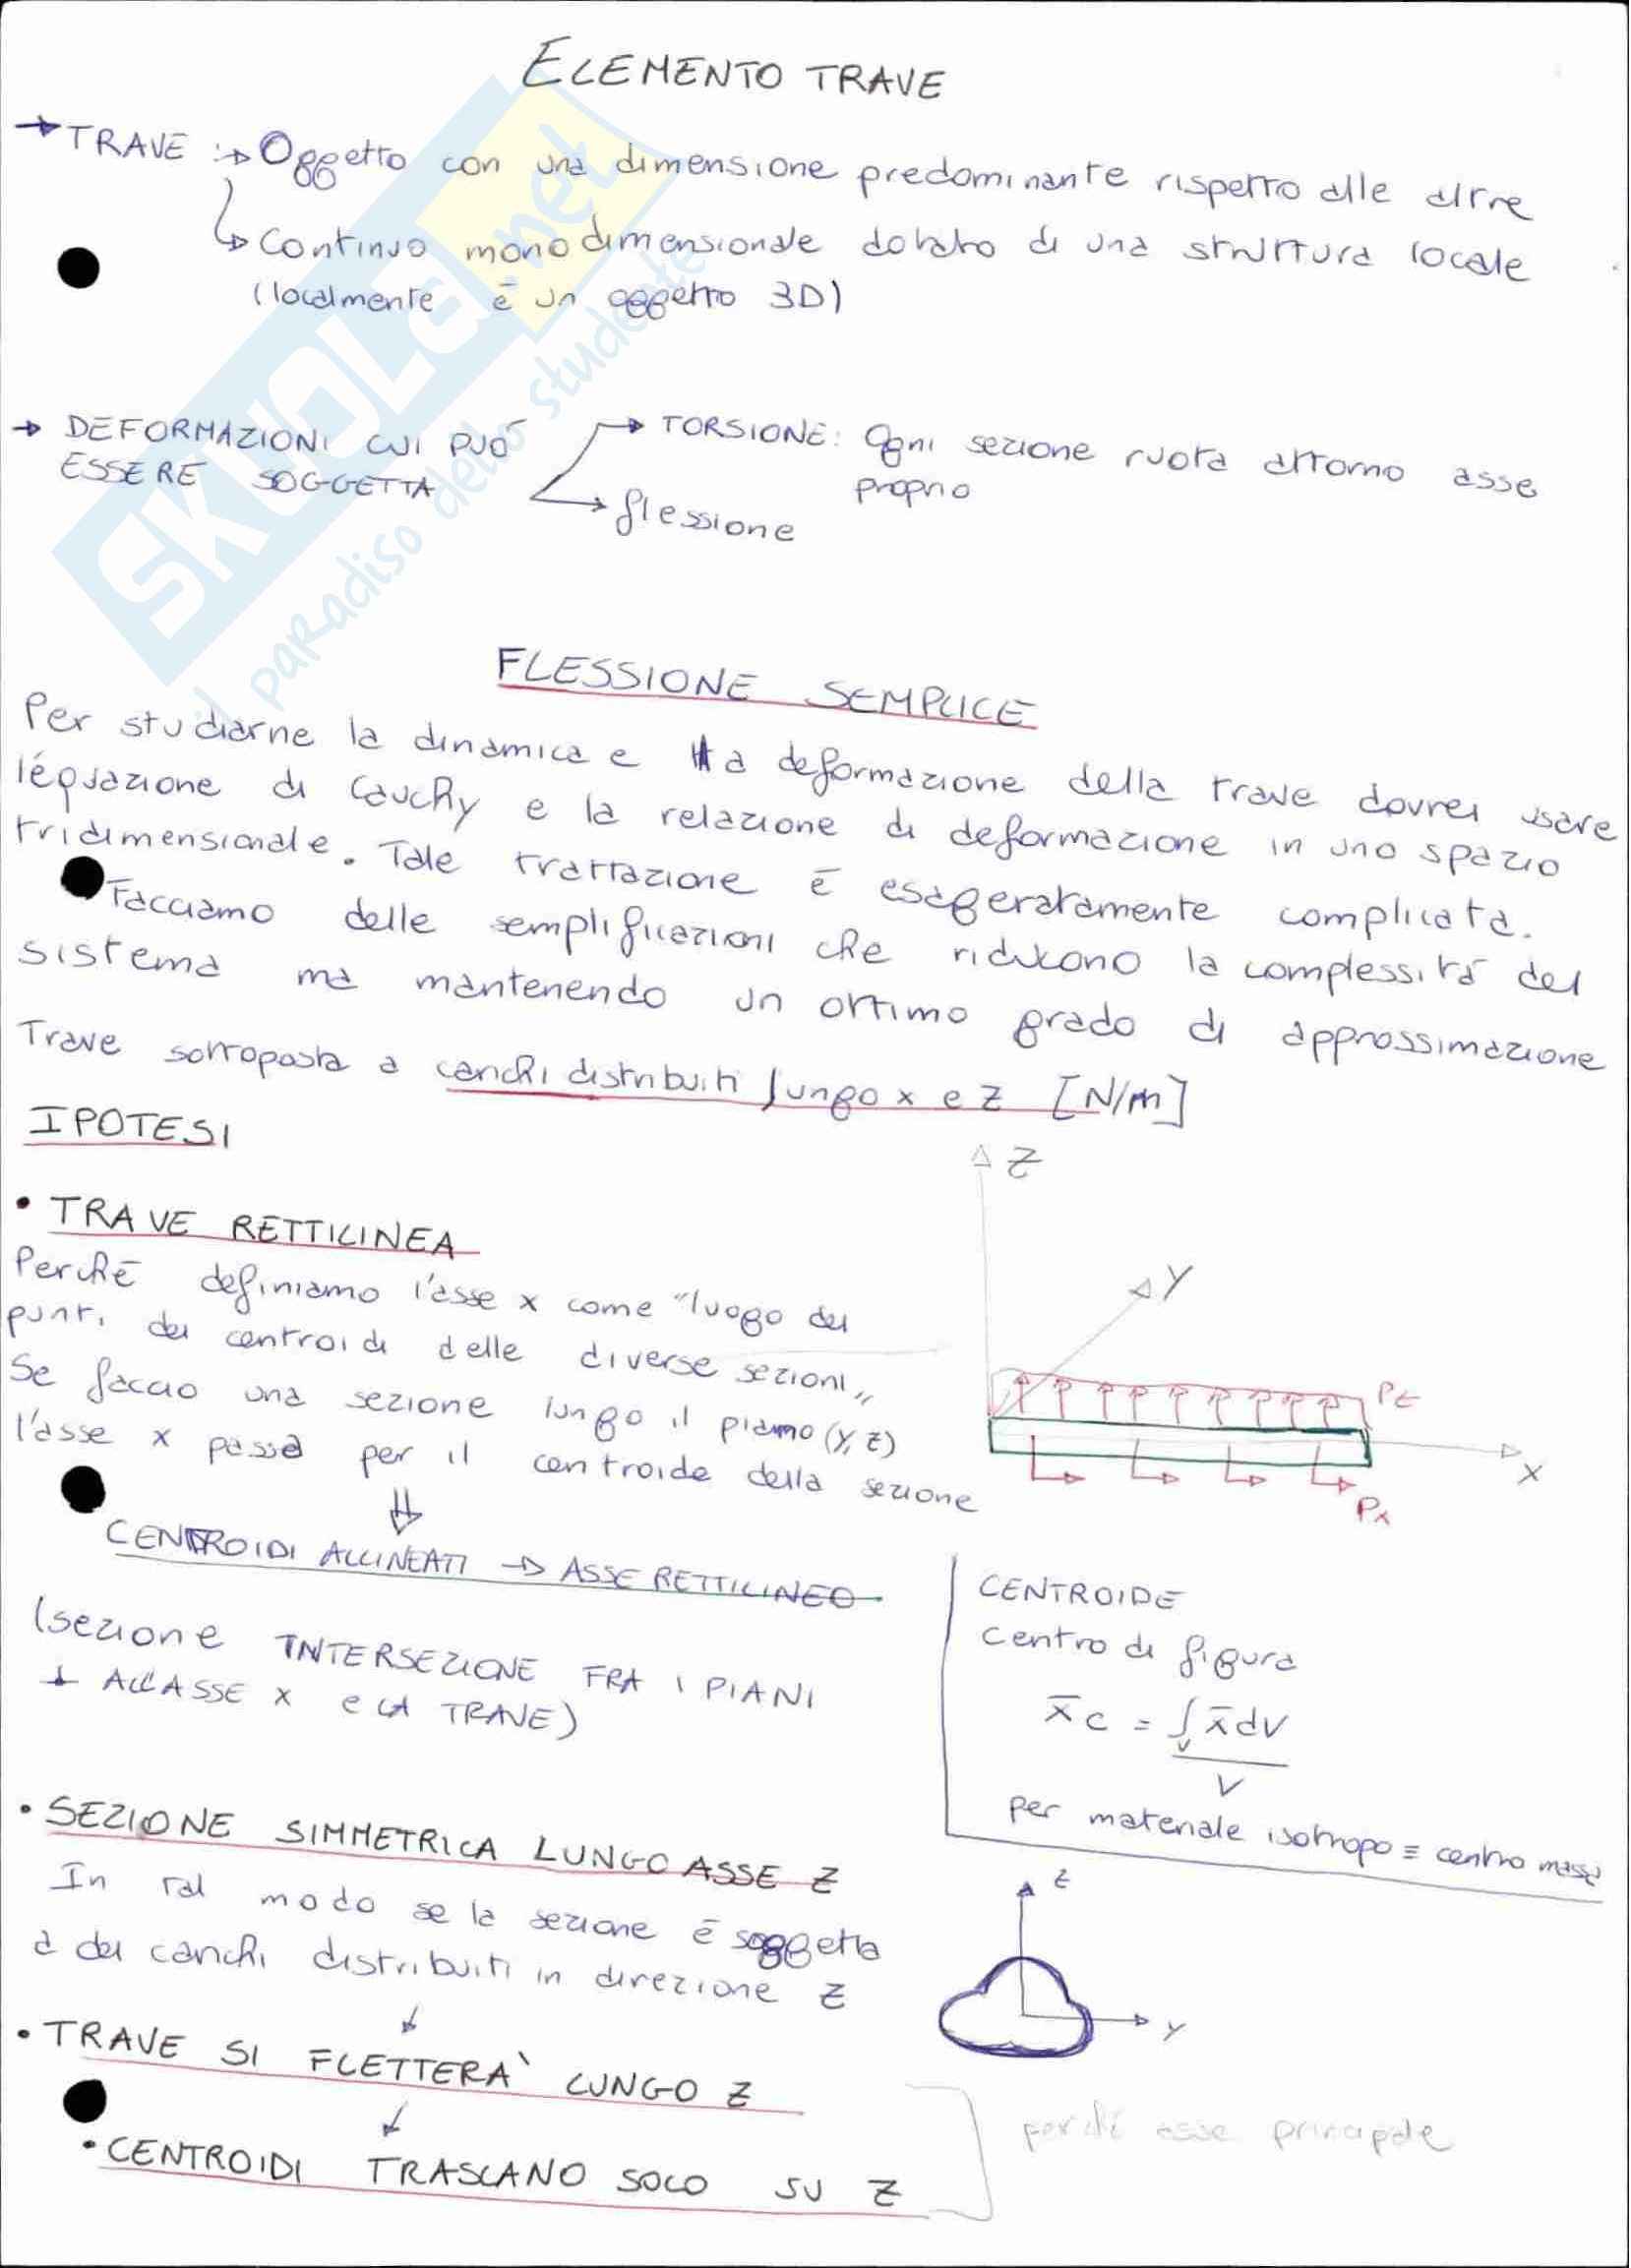 ELEMENTO TRAVE
→ TRAVE :→ Oggetto con una dimensione predominante rispetto alle altre
↳ Continuo monodimensionale dotato di una struttura locale
(localmente è un oggetto 3D)
→ DEFORMAZIONI CUI PUÒ
ESSERE SOGGETTA
→ TORSIONE: Ogni sezione ruota attorno asse
proprio
→ flessione
FLESSIONE SEMPLICE
Per studiarne la dinamica e la deformazione della trave dovrei usare
l'équazione di Cauchy e la relazione di deformazione in uno spazio
tridimensionale. Tale trattazione è esageratamente complicata.
Facciamo delle semplificazioni che riducono la complessità del
sistema ma mantenendo un ottimo grado di approssimazione
Trave sottoposta a carichi distribuiti lungo x e z [N/m]
IPOTESI
• TRAVE RETTILINEA
Perchè definiamo l'asse x come "luogo dei
punti dei centroidi delle diverse sezioni"
Se faccio una sezione lungo il piano (y, z)
l'asse x passa per il centroide della sezione
⇓
CENTROIDI ALLINEATI → ASSE RETTILINEO
(sezione INTERSEZIONE FRA I PIANI
⊥ ALL'ASSE x e LA TRAVE)
z
y
Pz
x
Px
CENTROIDE
centro di figura
x̄c = ∫v x̄ dV
V
per materiale isotropo ≡ centro massa
• SEZIONE SIMMETRICA LUNGO ASSE Z
In tal modo se la sezione è soggetta
a dei carichi distribuiti in direzione z
↓
• TRAVE SI FLETTERA' LUNGO Z
↓
• CENTROIDI TRASLANO SOLO SU Z
z
y
perchè asse principale
SKUOLA.net
il paradiso dello studente